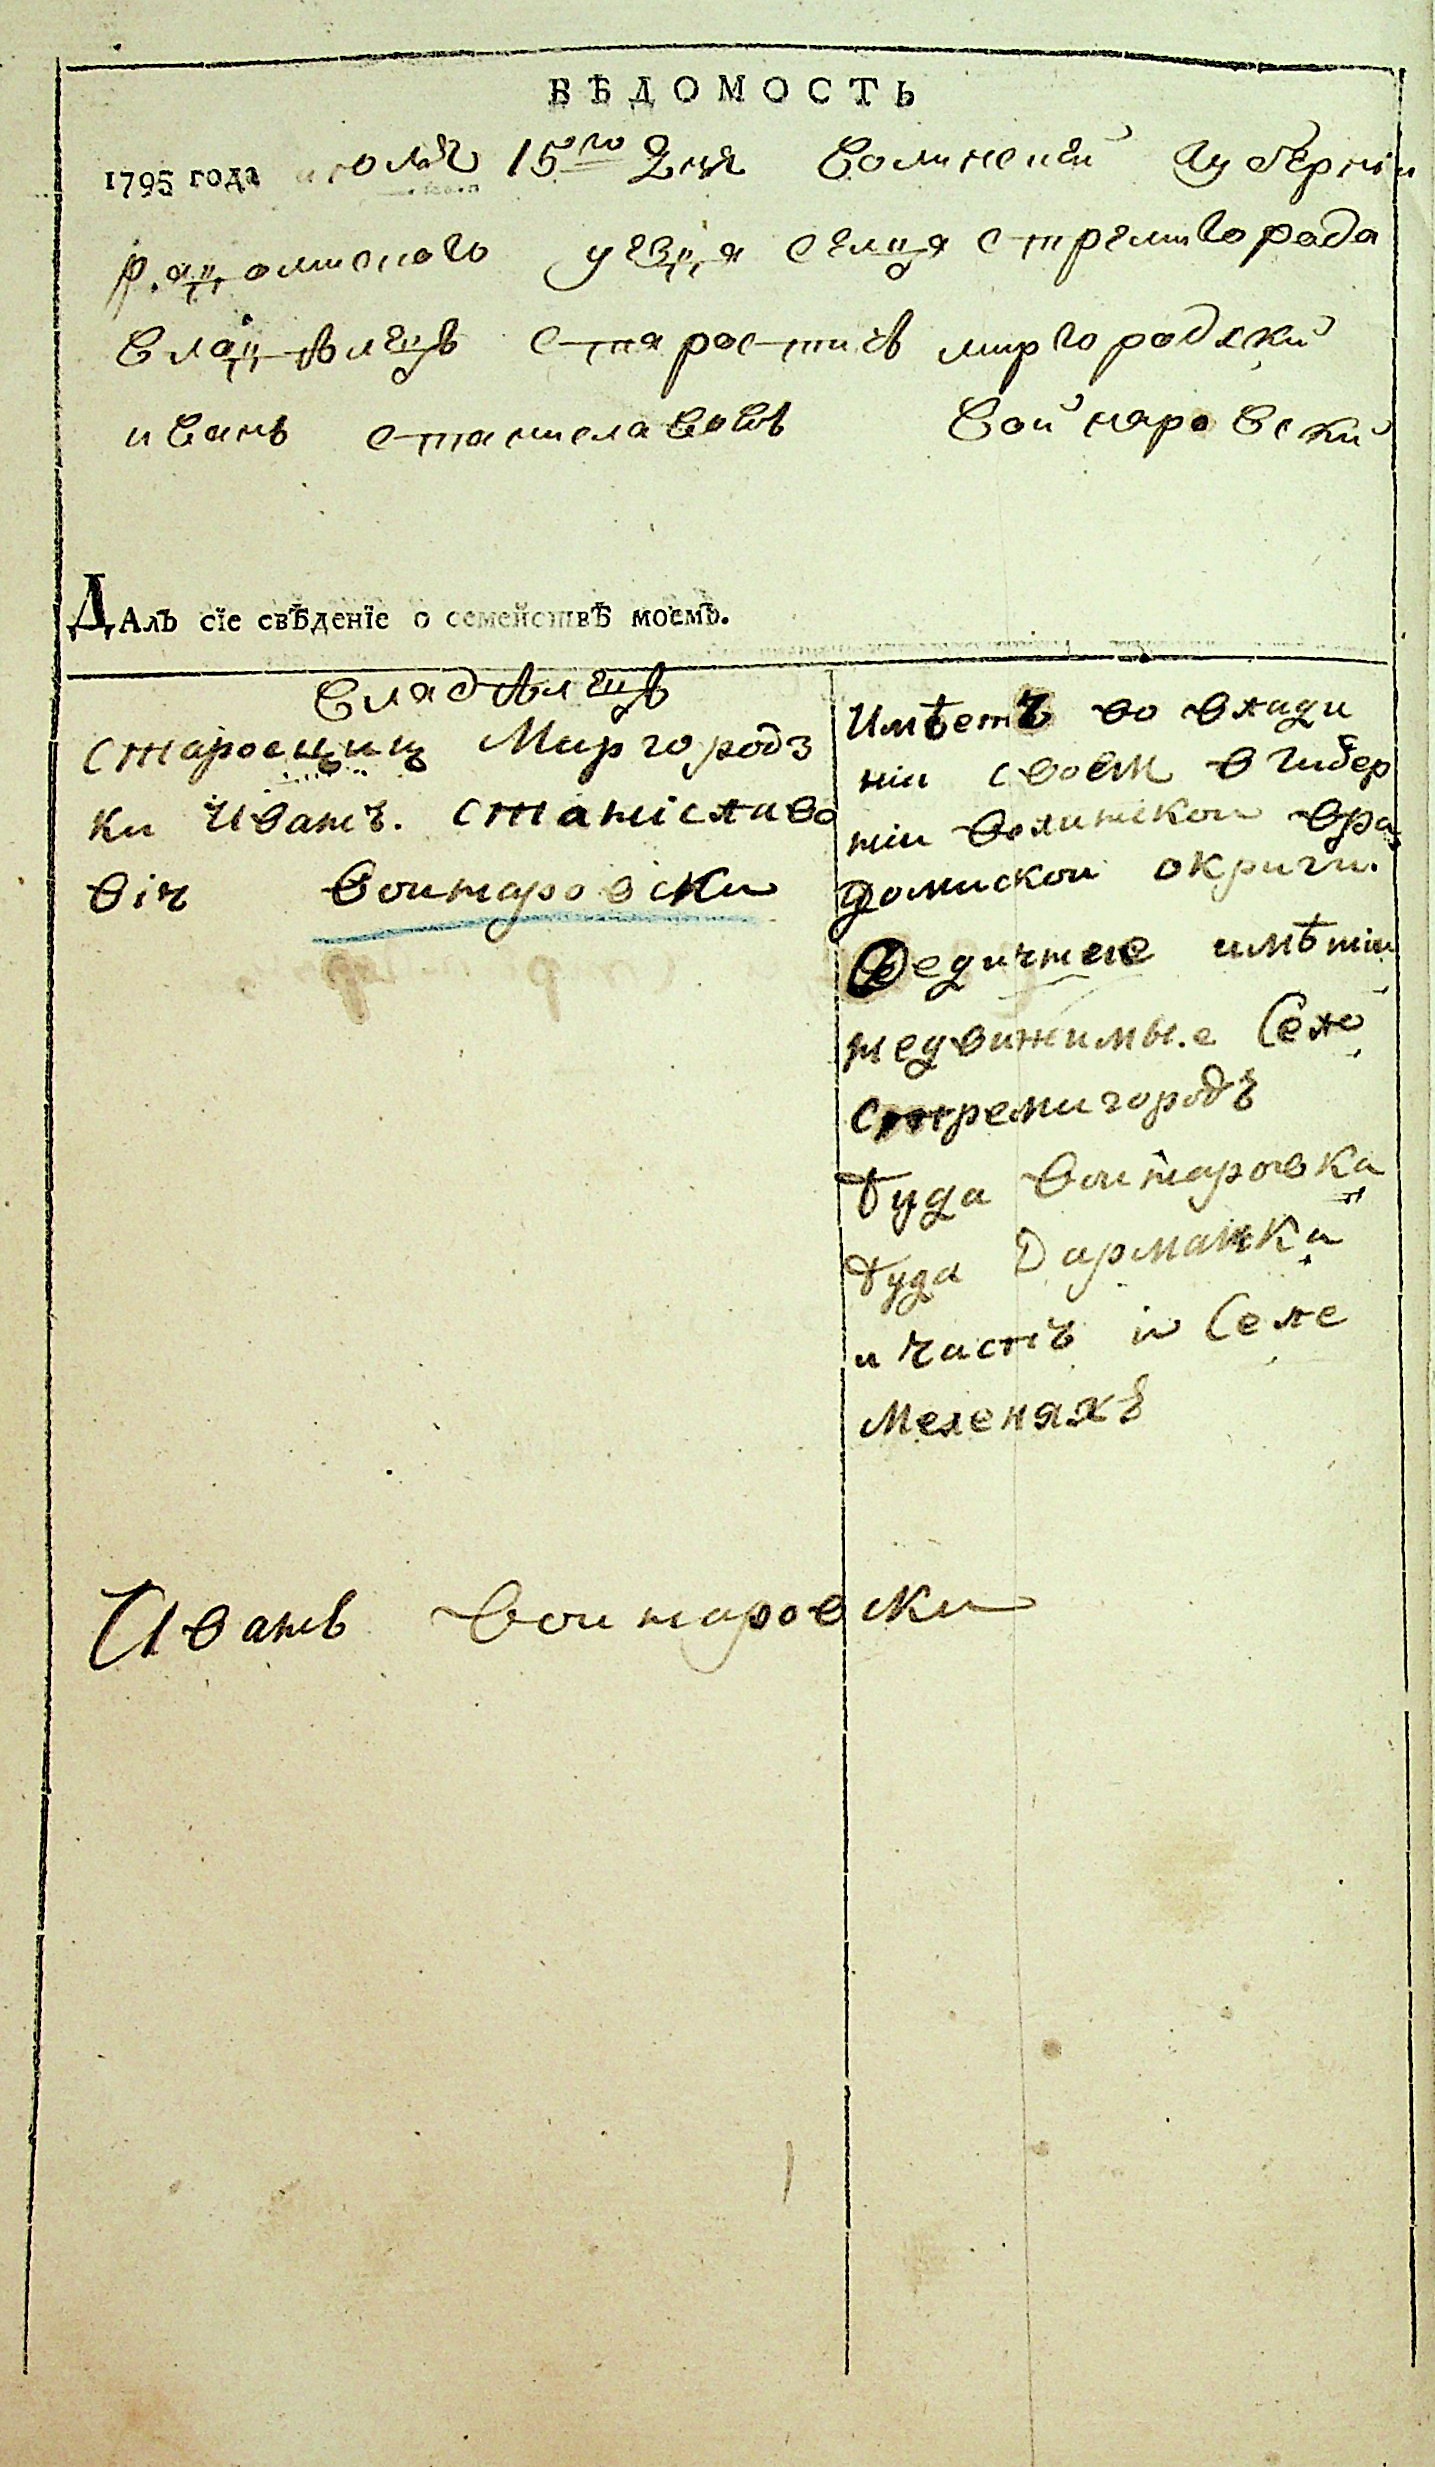 ВѢДОМОСТЬ
1795 года июля 15го дня Волынской губернiи
радомысльского уезда селца стремигорода
владѣлецъ старостичъ миргородзкий
иванъ станиславовъ Войнаровский
ДАлъ сїе свѣденїе о семействѣ моемъ.
Владѣлецъ
старосциц Миргородз
ки Иванъ. станіславо
вiч воинаровски
Имѣетъ во влади
нiи своем в губер
нiи волинской вра
домиской округи.
Едичные имѣнiи
недвижимые Село
стремигородъ
буда воинаровка
буда Дарманка
и часть в Селе
меленяхъ
Иванъ воинаровски